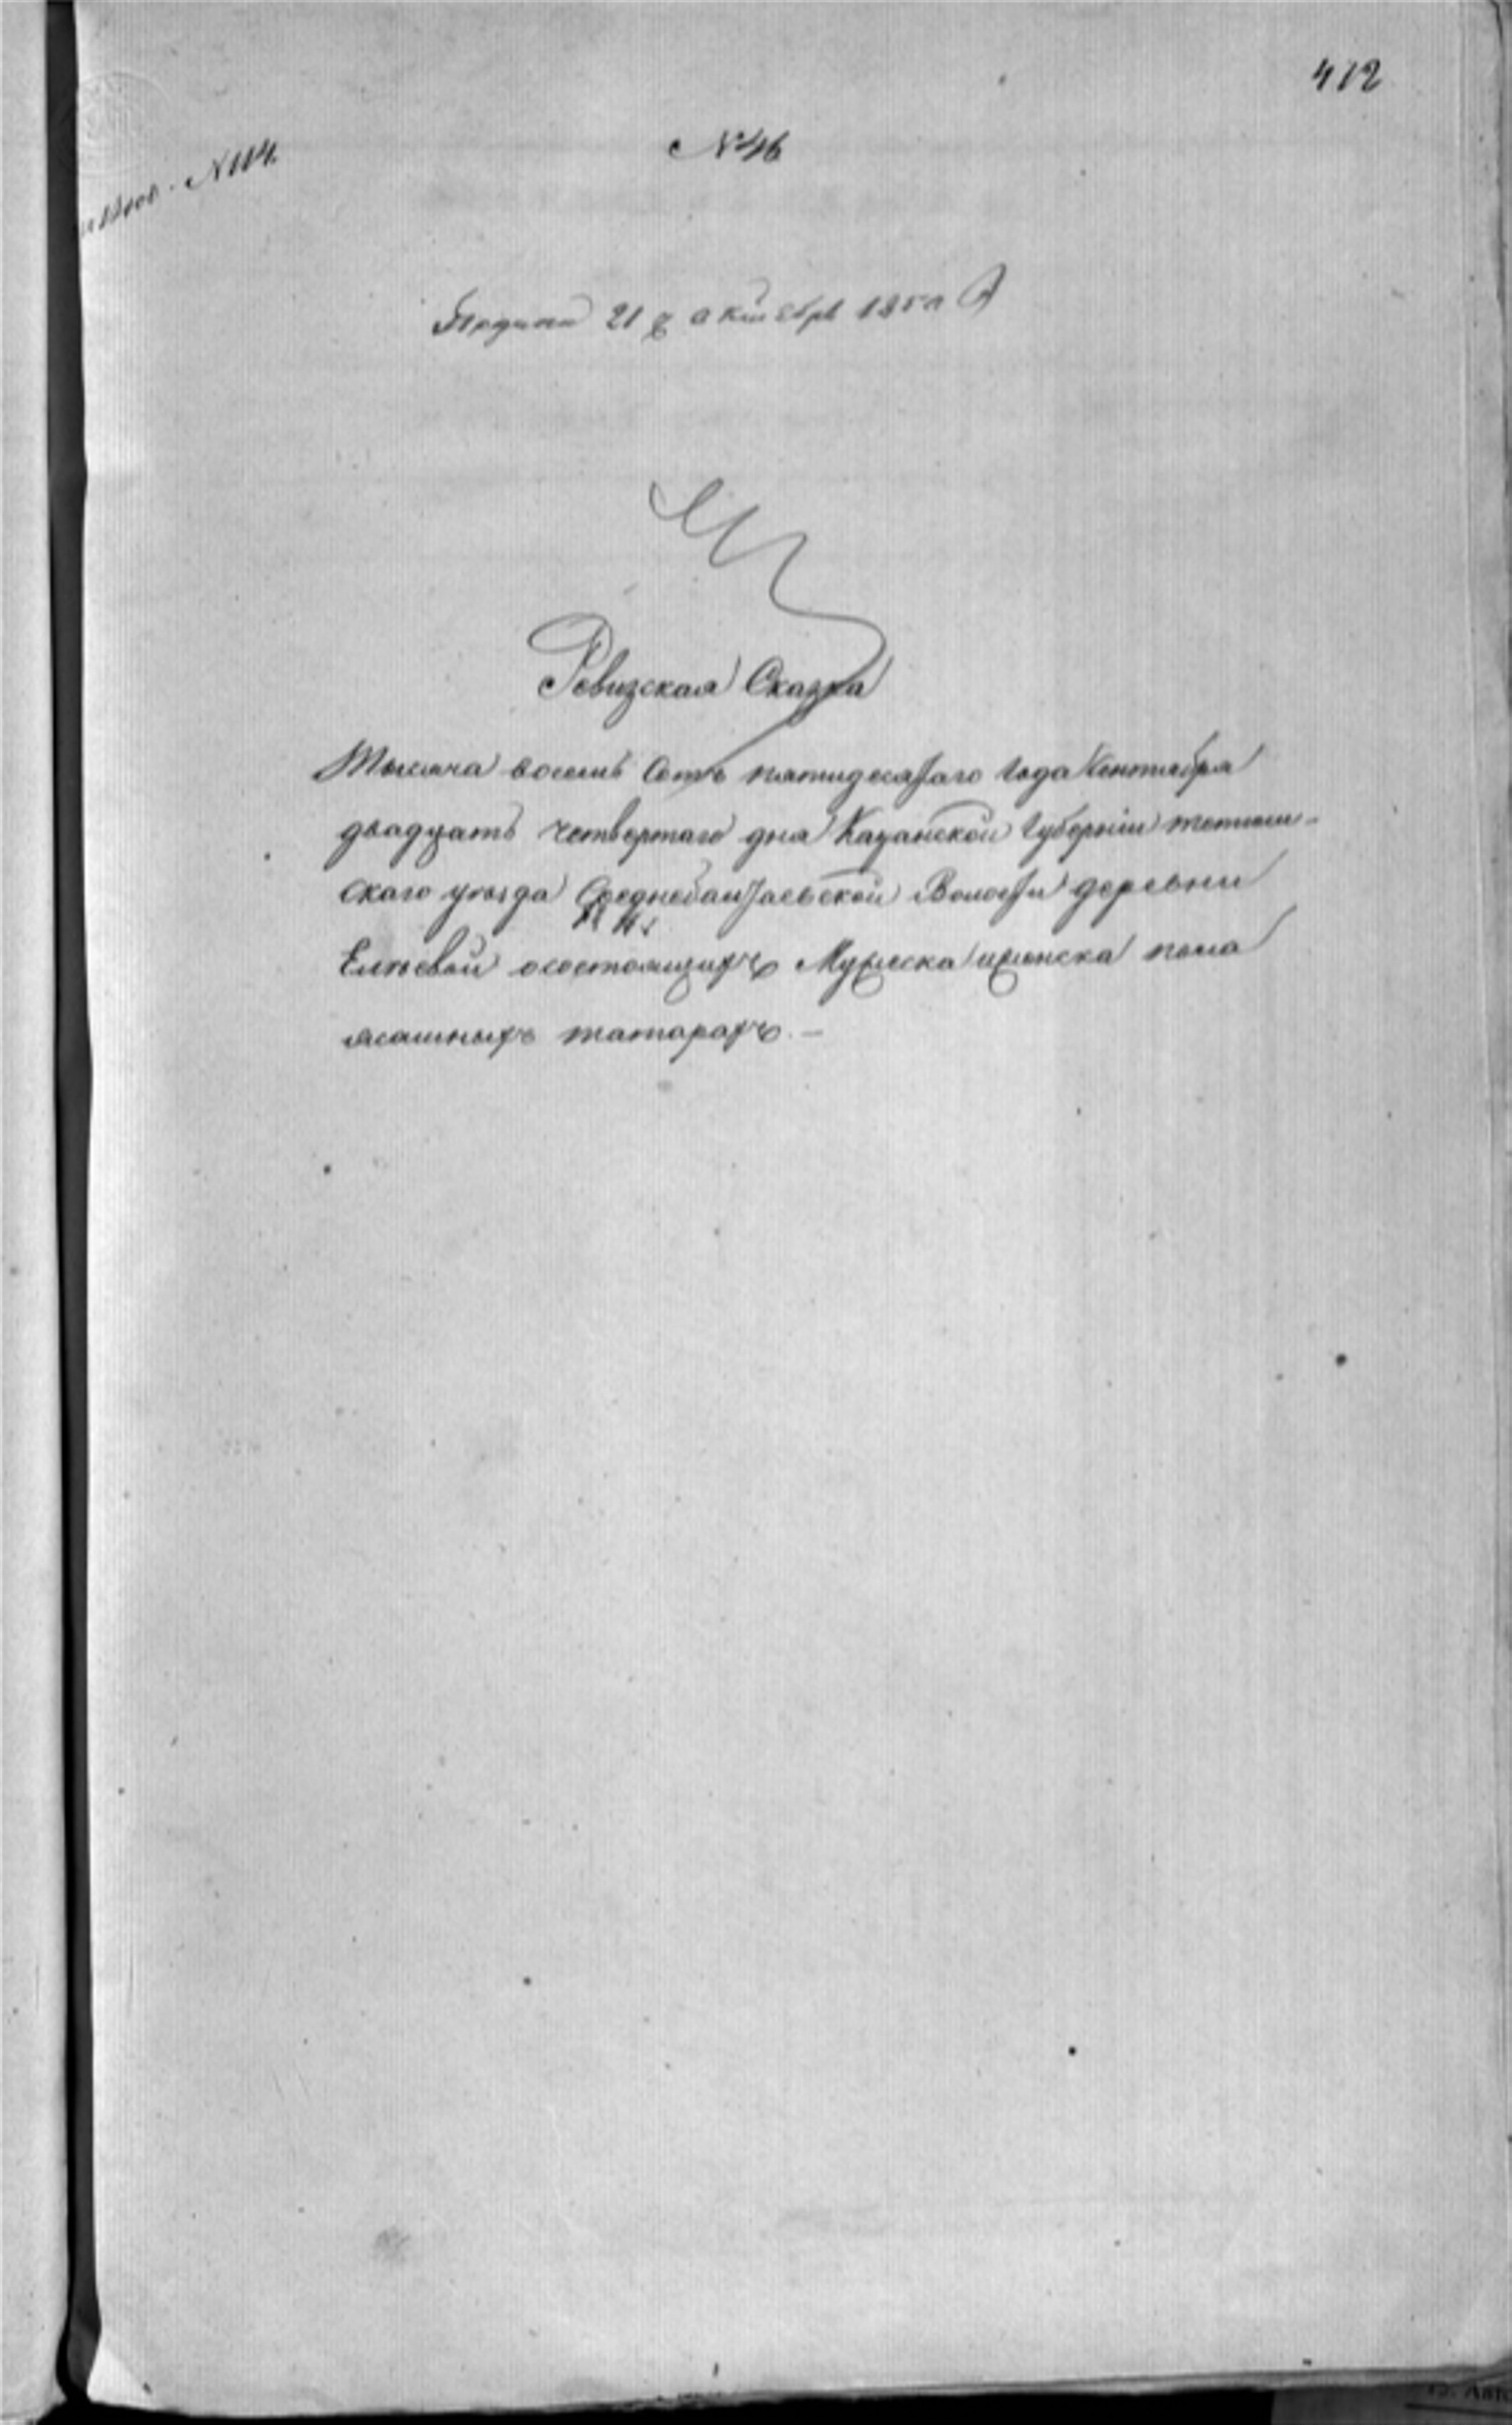 412
№ 46
N 114.
Подана 21 октября 1850
Ревизская Сказка
Тысяча восемь Сотъ пятидесятаго года Сентября
двадцать четвертаго дня Казанской губерніи тетюш-
скаго уезда Среднебалтаевской Волости деревни
осостоящихъ Мужеска иженска пола
ясашныхъ татарахъ. —